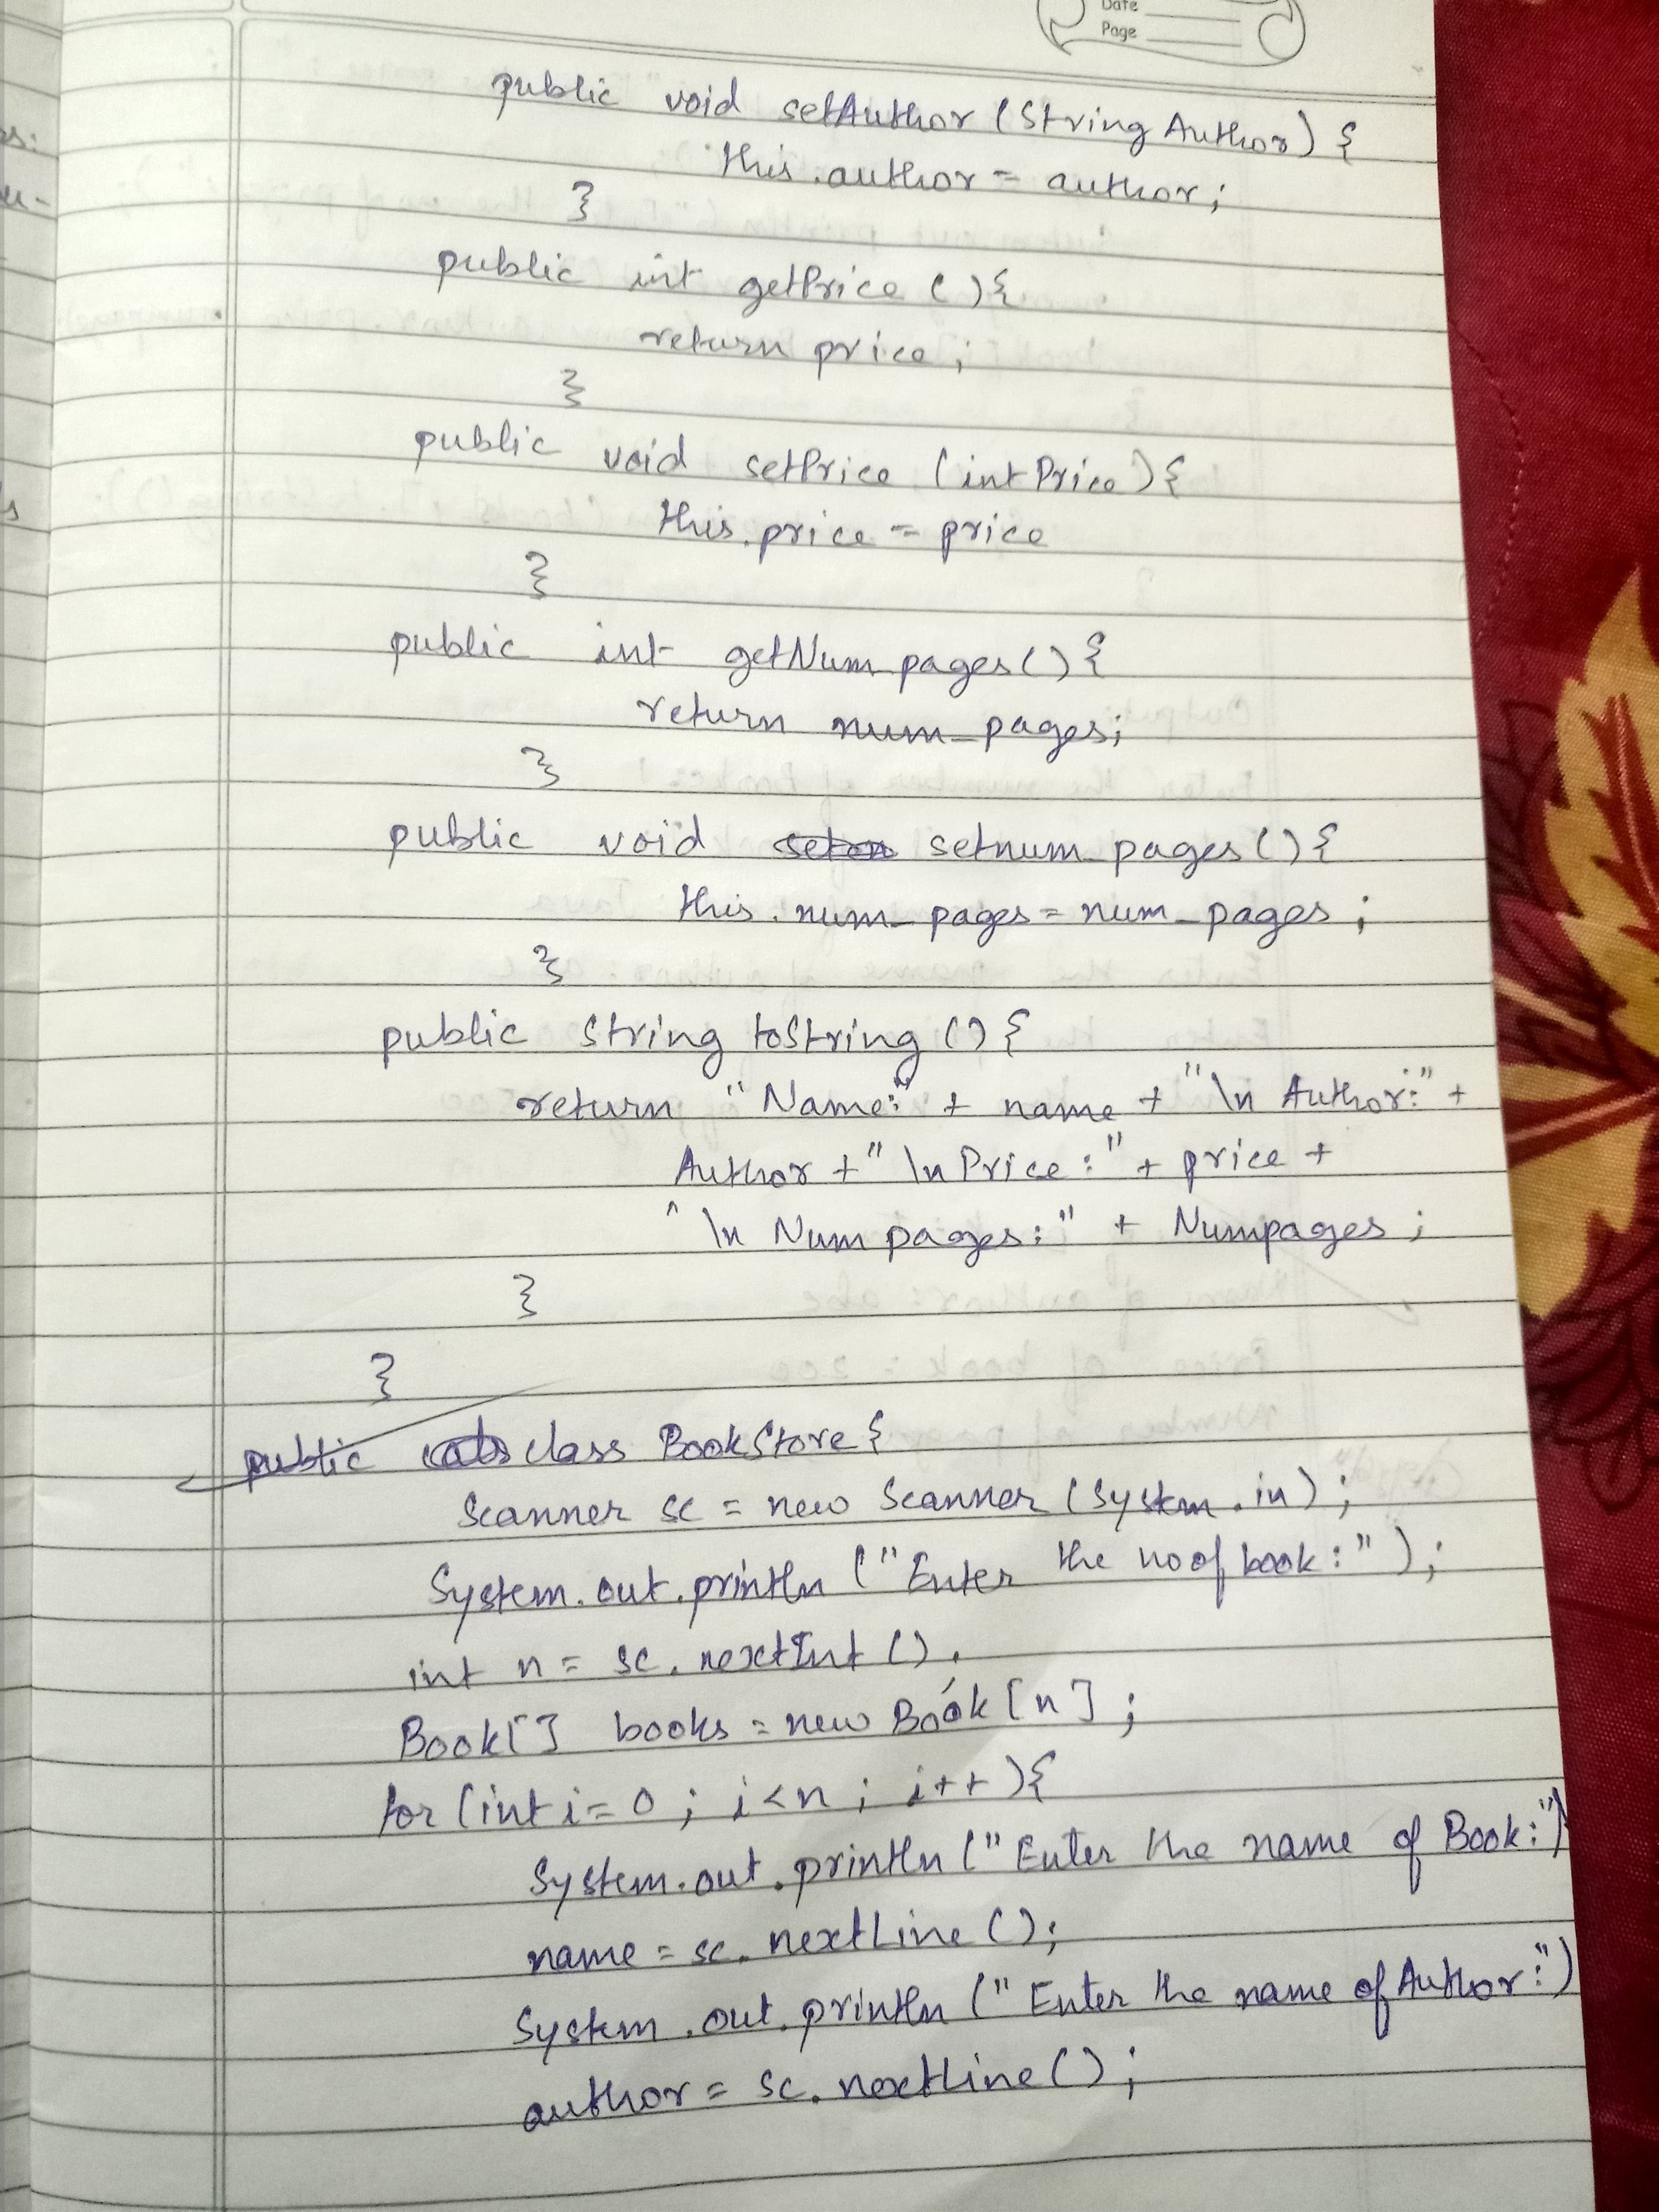 Date
Page
public void setAuthor (String Author) {
this.author = author;
}
public int getPrice () {
return price;
}
public void setPrice (int Price) {
this.price = price
}
public int getNum pages() {
return num_pages;
}
public void setnum_pages() {
this.num_pages = num_pages;
}
public String toString () {
return "Name:" + name + "\n Author:" +
Author + "\n Price:" + price +
"\n Num pages:" + Numpages;
}
}
public class BookStore {
Scanner sc = new Scanner (System.in);
System.out.println ("Enter the no of book:");
int n = sc.nextInt ().
Book[] books = new Book [n];
for (int i = 0; i<n; i++) {
System.out.println ("Enter the name of Book:")
name = sc.nextLine ();
System.out.println ("Enter the name of Author:")
author = sc.nextLine ();